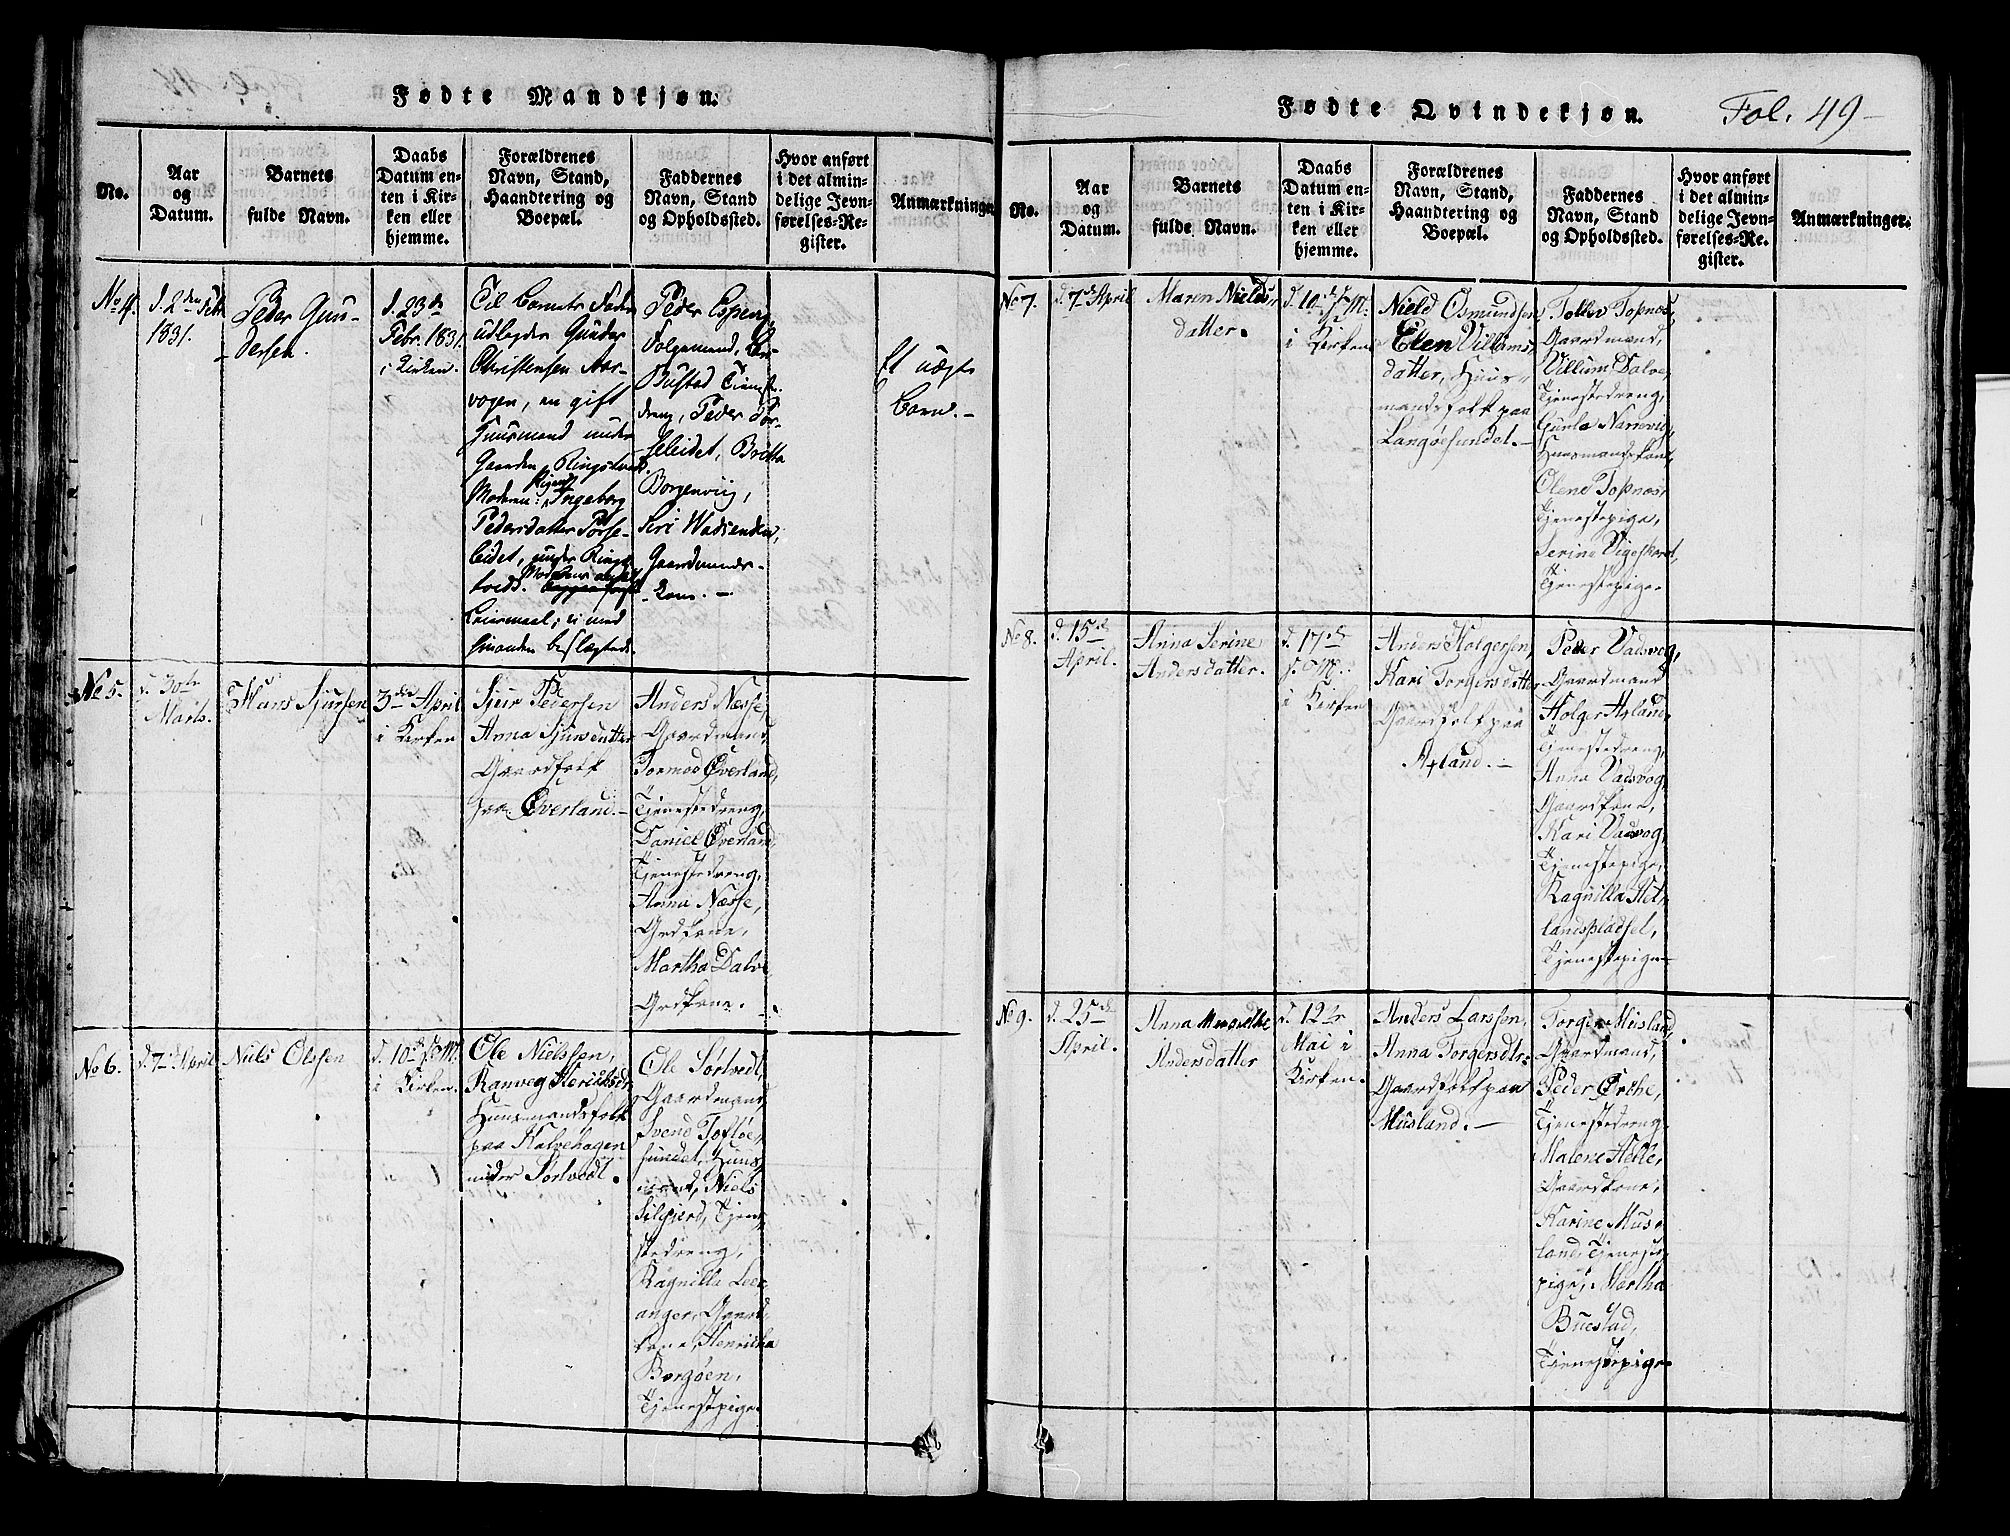 Fødte Mandkjøn.
No.
Aar
og
Datum.
Barnets
fulde Navn.
Daabs
Datum en-
ten i Kir-
ken eller
hjemme.
Forældrenes
Navn, Stand,
Haandtering og
Boepæl.
Faddernes
Navn, Stand
og Opholdssted.
Hvor anført
i det almin-
delige Jevn-
førelses-Re-
gister.
Anmærkninger
No 4.
d. 2den Febr
1831.
Peder Gun-
dersen.
d. 23de
Febr. 1831.
i Kirken.
Til Barnets Fader
udlegdes Gunder
Christensen Aar-
vogen, en gift
Huusmand under
Gaarden Ringstvedt.
Moderen: Pigen Ingeborg
Pedersdatter Torse-
leidet, under Rings-
tvedt. Moderens
Leiermaal; ei med
hinanden beslægtede.
Peder Espevig
Folgemand,
Bustad Tjeneste-
dreng, Peder Tor-
seleidet, Britta
Borgenviig,
Siri Wadsenden,
Gaardmands-
kone. –
Et uægte
Barn. –
No 5.
d. 30te
Marts.
Hans Sjursen
3die April
i Kirken
Sjur Pedersen
Anna Sjursdatter
Gaardfolk
paa Øverland. –
Anders Næsse,
Gaardmand,
Tormod Øverland,
Tjenestedreng,
Daniel Øverland,
Tjenestedreng,
Anna Næsse,
Grdkone,
Martha Dalve
Grdkone. –
No 6.
d. 7de April
Niels Olssen
d. 10de s. M.
i Kirken.
Ole Nielssen,
Ranveg Henriksdtr
Huusmandsfolk
paa Kalvehagen
under Sørtvedt.
Ole Sørtvedt,
Gaardmand,
Svend Toftøe-
sundet, Huus-
mand, Niels
Silgjerd, Tjene-
stedreng,
Ragnilla Leer-
anger, Gaard-
kone, Henricha
Borgøen,
Tjenestepige.
Fødte Qvindekjøn.
Fol. 49 –
No.
Aar
og
Datum.
Barnets
fulde Navn.
Daabs
Datum en-
ten i Kir-
ken eller
hjemme.
Forældrenes
Navn, Stand,
Haandtering og
Boepæl.
Faddernes
Navn, Stand
og Opholdssted.
Hvor anført
i det almin-
delige Jevn-
førelses-Re-
gister.
Anmærkninger.
No 7.
d. 7de April
Maren Niels-
datter.
d. 10de s. M.
i Kirken
Niels Osmundsen
Elen Villams-
datter, Huus-
mandsfolk paa
Langøesundet. –
Tollev Topnæs,
Gaardmand,
Villum Dalve,
Tjenestedreng,
Gunla Narrevig,
Huusmandskone,
Olene Topnæs,
Tjenestepige,
Serine Vigeskoet,
Tjenestepige.
No 8.
d. 15de
April.
Anna Serine
Andersdatter.
d. 17de
s. M.
i Kirken
Anders Holgersen,
Kari Torgersdatter
Gaardfolk paa
Axland. –
Peder Vadsvog,
Gaardmand
Holger Axland
Tjenestedreng,
Anna Vadsvog
Gaardkone,
Kari Vadsvog,
Tjenestepige,
Ragnilla Het-
landspladsel,
Tjenestepige
No 9.
d. 25de
April.
Anna
Andersdatter
d. 12te
Mai i
Kirken.
Anders Larssen,
Anna Torgersdtr
Gaardfolk paa
Musland. –
Torger Musland,
Gaardmand,
Peder Ørthe,
Tjenestedreng
Malene Helle,
Gaardkone,
Karine Mus-
land, Tjeneste-
pige, Martha
Buestad,
Tjenestepige